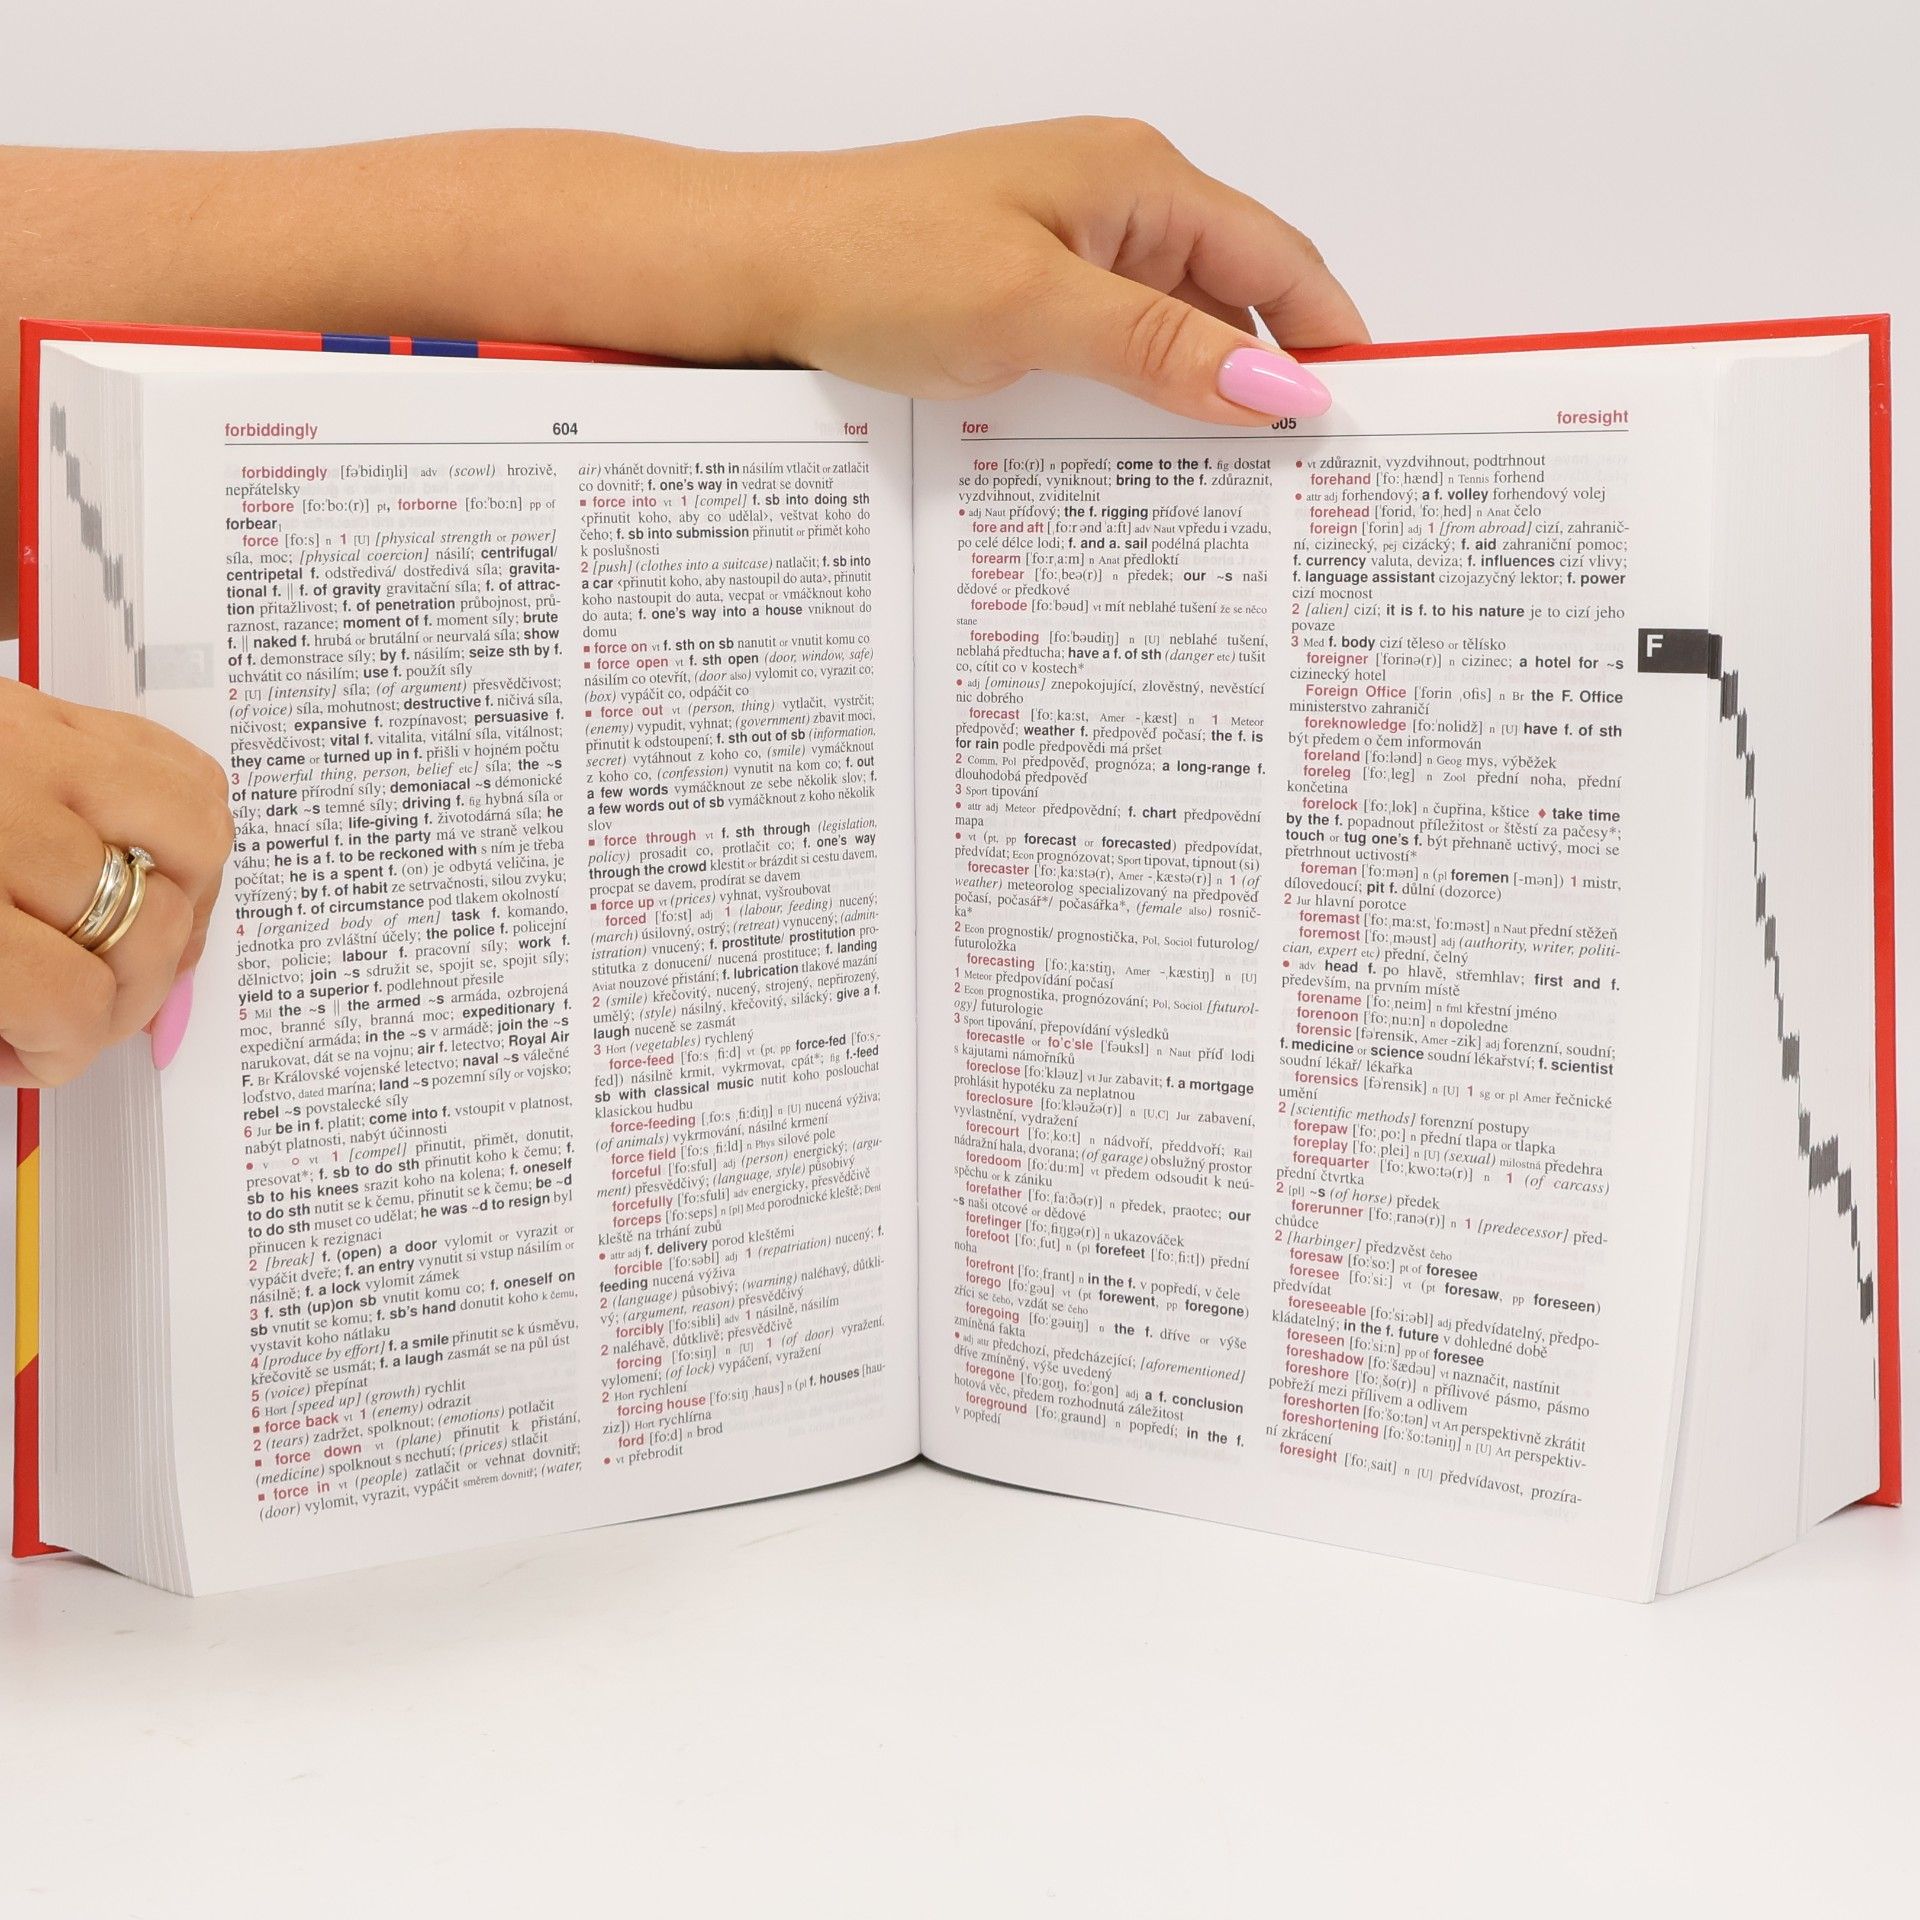 forbiddingly 604 ford
forbiddingly [fəˈbidiŋli] adv (scowl) hrozivě,
nepřátelsky
forbore [fo:ˈbo:(r)] pt, forborne [fo:ˈbo:n] pp of
forbear
force [fo:s] n 1 [U] [physical strength or power]
síla, moc; [physical coercion] násilí; centrifugal/
centripetal f. odstředivá/ dostředivá síla; gravita-
tional f. || f. of gravity gravitační síla; f. of attrac-
tion přitažlivost; f. of penetration průbojnost, prů-
raznost, razance; moment of f. moment síly; brute
f. || naked f. hrubá or brutální or neurvalá síla; show
of f. demonstrace síly; by f. násilím; seize sth by f.
uchvátit co násilím; use f. použít síly
2 [U] [intensity] síla; (of argument) přesvědčivost;
(of voice) síla, mohutnost; destructive f. ničivá síla,
ničivost; expansive f. rozpínavost; persuasive f.
přesvědčivost; vital f. vitalita, vitální síla, vitálnost;
they came or turned up in f. přišli v hojném počtu
3 [powerful thing, person, belief etc] síla; the ~s
of nature přírodní síly; demoniacal ~s démonické
síly; dark ~s temné síly; driving f. fig hybná síla or
páka, hnací síla; life-giving f. životodárná síla; he
is a powerful f. in the party má ve straně velkou
váhu; he is a f. to be reckoned with s ním je třeba
počítat; he is a spent f. (on) je odbytá veličina, je
vyřízený; by f. of habit ze setrvačnosti, silou zvyku;
through f. of circumstance pod tlakem okolností
4 [organized body of men] task f. komando,
jednotka pro zvláštní účely; the police f. policejní
sbor, policie; labour f. pracovní síly; work f.
dělnictvo; join ~s sdružit se, spojit se, spojit síly;
yield to a superior f. podlehnout přesile
5 Mil the ~s || the armed ~s armáda, ozbrojená
moc, branné síly, branná moc; expeditionary f.
expediční armáda; in the ~s v armádě; join the ~s
narukovat, dát se na vojnu; air f. letectvo; Royal Air
F. Br Královské vojenské letectvo; naval ~s válečné
loďstvo, dated marína; land ~s pozemní síly or vojsko;
rebel ~s povstalecké síly
6 Jur be in f. platit; come into f. vstoupit v platnost,
nabýt platnosti, nabýt účinnosti
● v o vt 1 [compel] přinutit, přimět, donutit,
presovat*; f. sb to do sth přinutit koho k čemu; f.
sb to his knees srazit koho na kolena; f. oneself
to do sth nutit se k čemu, přinutit se k čemu; be ~d
to do sth muset co udělat; he was ~d to resign byl
přinucen k rezignaci
2 [break] f. (open) a door vylomit or vyrazit or
vypáčit dveře; f. an entry vynutit si vstup násilím or
násilně; f. a lock vylomit zámek
3 f. sth (up)on sb vnutit komu co; f. oneself on
sb vnutit se komu; f. sb's hand donutit koho k čemu,
vystavit koho nátlaku
4 [produce by effort] f. a smile přinutit se k úsměvu,
křečovitě se usmát; f. a laugh zasmát se na půl úst
5 (voice) přepínat
6 Hort [speed up] (growth) rychlit
■ force back vt 1 (enemy) odrazit
2 (tears) zadržet, spolknout; (emotions) potlačit
■ force down vt (plane) přinutit k přistání,
(medicine) spolknout s nechutí; (prices) stlačit
■ force in vt (people) zatlačit or vehnat dovnitř;
(door) vylomit, vyrazit, vypáčit směrem dovnitř; (water,
air) vhánět dovnitř; f. sth in násilím vtlačit or zatlačit
co dovnitř; f. one's way in vedrat se dovnitř
■ force into vt 1 [compel] f. sb into doing sth
‹přinutit koho, aby co udělal›, veštvat koho do
čeho; f. sb into submission přinutit or přimět koho
k poslušnosti
2 [push] (clothes into a suitcase) natlačit; f. sb into
a car ‹přinutit koho, aby nastoupil do auta›, přinutit
koho nastoupit do auta, vecpat or vmáčknout koho
do auta; f. one's way into a house vniknout do
domu
■ force on vt f. sth on sb nanutit or vnutit komu co
■ force open vt f. sth open (door, window, safe)
násilím co otevřít, (door also) vylomit co, vyrazit co;
(box) vypáčit co, odpáčit co
■ force out vt (person, thing) vytlačit, vystrčit;
(enemy) vypudit, vyhnat; (government) zbavit moci,
přinutit k odstoupení; f. sth out of sb (information,
secret) vytáhnout z koho co, (smile) vymáčknout
z koho co, (confession) vynutit na kom co; f. out
a few words vymáčknout ze sebe několik slov; f.
a few words out of sb vymáčknout z koho několik
slov
■ force through vt f. sth through (legislation,
policy) prosadit co, protlačit co; f. one's way
through the crowd klestit or brázdit si cestu davem,
procpat se davem, prodírat se davem
■ force up vt (prices) vyhnat, vyšroubovat
forced [fo:st] adj 1 (labour, feeding) nucený;
(march) úsilovný, ostrý; (retreat) vynucený; (admin-
istration) vnucený; f. prostitute/ prostitution pro-
stitutka z donucení/ nucená prostituce; f. landing
Aviat nouzové přistání; f. lubrication tlakové mazání
2 (smile) křečovitý, nucený, strojený, nepřirozený,
umělý; (style) násilný, křečovitý, silácký; give a f.
laugh nuceně se zasmát
3 Hort (vegetables) rychlený
force-feed [ˈfo:sˌfi:d] vt (pt, pp force-fed [ˈfo:s-
fed]) násilně krmit, vykrmovat, cpát*; fig f.-feed
sb with classical music nutit koho poslouchat
klasickou hudbu
force-feeding [ˌfo:sˌfi:diŋ] n [U] nucená výživa;
(of animals) vykrmování, násilné krmení
force field [ˈfo:sˌfi:ld] n Phys silové pole
forceful [ˈfo:sful] adj (person) energický; (argu-
ment) přesvědčivý; (language, style) působivý
forcefully [ˈfo:sfuli] adv energicky, přesvědčivě
forceps [ˈfo:seps] n [pl] Med porodnické kleště; Dent
kleště na trhání zubů
● attr adj f. delivery porod kleštěmi
forcible [ˈfo:səbl] adj 1 (repatriation) nucený; f.
feeding nucená výživa
2 (language) působivý; (warning) naléhavý, důtkli-
vý; (argument, reason) přesvědčivý
forcibly [ˈfo:sibli] adv 1 násilně, násilím
2 naléhavě, důtklivě; přesvědčivě
forcing [ˈfo:siŋ] n [U] 1 (of door) vyražení,
vylomení; (of lock) vypáčení, vyražení
2 Hort rychlení
forcing house [ˈfo:siŋˌhaus] n (pl f. houses [hau-
ziz]) Hort rychlírna
ford [fo:d] n brod
● vt přebrodit
fore 605 foresight
fore [fo:(r)] n popředí; come to the f. fig dostat
se do popředí, vyniknout; bring to the f. zdůraznit,
vyzdvihnout, zviditelnit
● adj Naut příďový; the f. rigging příďové lanoví
fore and aft [ˌfo:r ənd ˈa:ft] adv Naut vpředu i vzadu,
po celé délce lodi; f. and a. sail podélná plachta
forearm [ˈfo:rˌa:m] n Anat předloktí
forebear [ˈfo:ˌbeə(r)] n předek; our ~s naši
dědové or předkové
forebode [fo:ˈbəud] vt mít neblahé tušení že se něco
stane
foreboding [fo:ˈbəudiŋ] n [U] neblahé tušení,
neblahá předtucha; have a f. of sth (danger etc) tušit
co, cítit co v kostech*
● adj [ominous] znepokojující, zlověstný, nevěstící
nic dobrého
forecast [ˈfo:ˌka:st, Amer -ˌkæst] n 1 Meteor
předpověď; weather f. předpověď počasí; the f. is
for rain podle předpovědi má pršet
2 Comm, Pol předpověď, prognóza; a long-range f.
dlouhodobá předpověď
3 Sport tipování
● attr adj Meteor předpovědní; f. chart předpovědní
mapa
● vt (pt, pp forecast or forecasted) předpovídat,
předvídat; Econ prognózovat; Sport tipovat, tipnout (si)
forecaster [ˈfo:ˌka:stə(r), Amer -ˌkæstə(r)] n 1 (of
weather) meteorolog specializovaný na předpověď
počasí, počasář*/ počasářka*, (female also) rosnič-
ka*
2 Econ prognostik/ prognostička, Pol, Sociol futurolog/
futuroložka
forecasting [ˈfo:ˌka:stiŋ, Amer -ˌkæstiŋ] n [U]
1 Meteor předpovídání počasí
2 Econ prognostika, prognózování; Pol, Sociol [futurol-
ogy] futurologie
3 Sport tipování, přepovídání výsledků
forecastle or fo'c'sle [ˈfəuksl] n Naut příď lodi
s kajutami námořníků
foreclose [fo:ˈkləuz] vt Jur zabavit; f. a mortgage
prohlásit hypotéku za neplatnou
foreclosure [fo:ˈkləužə(r)] n [U,C] Jur zabavení,
vyvlastnění, vydražení
forecourt [ˈfo:ˌko:t] n nádvoří, předdvoří; Rail
nádražní hala, dvorana; (of garage) obslužný prostor
foredoom [fo:ˈdu:m] vt předem odsoudit k neú-
spěchu or k zániku
forefather [ˈfo:ˌfa:ðə(r)] n předek, praotec; our
~s naši otcové or dědové
forefinger [ˈfo:ˌfiŋgə(r)] n ukazováček
forefoot [ˈfo:ˌfut] n (pl forefeet [ˈfo:ˌfi:t]) přední
noha
forefront [ˈfo:ˌfrant] n in the f. v popředí, v čele
forego [fo:ˈgəu] vt (pt forewent, pp foregone)
zříci se čeho, vzdát se čeho
foregoing [fo:ˈgəuiŋ] n the f. dříve or výše
zmíněná fakta
● adj attr předchozí, předcházející; [aforementioned]
dříve zmíněný, výše uvedený
foregone [ˈfo:gon, fo:ˈgon] adj a f. conclusion
hotová věc, předem rozhodnutá záležitost
foreground [ˈfo:ˌgraund] n popředí; in the f.
v popředí
● vt zdůraznit, vyzdvihnout, podtrhnout
forehand [ˈfo:ˌhænd] n Tennis forhend
● attr adj forhendový; a f. volley forhendový volej
forehead [ˈforid, ˈfo:ˌhed] n Anat čelo
foreign [ˈforin] adj 1 [from abroad] cizí, zahranič-
ní, cizinecký, pej cizácký; f. aid zahraniční pomoc;
f. currency valuta, deviza; f. influences cizí vlivy;
f. language assistant cizojazyčný lektor; f. power
cizí mocnost
2 [alien] cizí; it is f. to his nature je to cizí jeho
povaze
3 Med f. body cizí těleso or tělísko
foreigner [ˈforinə(r)] n cizinec; a hotel for ~s
cizinecký hotel
Foreign Office [ˈforinˌofis] n Br the F. Office
ministerstvo zahraničí
foreknowledge [fo:ˈnolidž] n [U] have f. of sth
být předem o čem informován
foreland [ˈfo:lənd] n Geog mys, výběžek
foreleg [ˈfo:ˌleg] n Zool přední noha, přední
končetina
forelock [ˈfo:ˌlok] n čupřina, kštice ♦ take time
by the f. popadnout příležitost or štěstí za pačesy*;
touch or tug one's f. být přehnaně uctivý, moci se
přetrhnout uctivostí*
foreman [ˈfo:mən] n (pl foremen [-mən]) 1 mistr,
dílovedoucí; pit f. důlní (dozorce)
2 Jur hlavní porotce
foremast [ˈfo:ˌma:st, ˈfo:məst] n Naut přední stěžeň
foremost [ˈfo:ˌməust] adj (authority, writer, politi-
cian, expert etc) přední, čelný
● adv head f. po hlavě, střemhlav; first and f.
především, na prvním místě
forename [ˈfo:ˌneim] n fml křestní jméno
forenoon [ˈfo:ˌnu:n] n dopoledne
forensic [fəˈrensik, Amer -zik] adj forenzní, soudní;
f. medicine or science soudní lékařství; f. scientist
soudní lékař/ lékařka
forensics [fəˈrensik] n [U] 1 sg or pl Amer řečnické
umění
2 [scientific methods] forenzní postupy
forepaw [ˈfo:ˌpo:] n přední tlapa or tlapka
foreplay [ˈfo:ˌplei] n [U] (sexual) milostná předehra
forequarter [ˈfo:ˌkwo:tə(r)] n 1 (of carcass)
přední čtvrtka
2 [pl] ~s (of horse) předek
forerunner [ˈfo:ˌranə(r)] n 1 [predecessor] před-
chůdce
2 [harbinger] předzvěst čeho
foresaw [fo:ˈso:] pt of foresee
foresee [fo:ˈsi:] vt (pt foresaw, pp foreseen)
předvídat
foreseeable [fo:ˈsi:əbl] adj předvídatelný, předpo-
kládatelný; in the f. future v dohledné době
foreseen [fo:ˈsi:n] pp of foresee
foreshadow [fo:ˈšædəu] vt naznačit, nastínit
foreshore [ˈfo:ˌšo(r)] n přílivové pásmo, pásmo
pobřeží mezi přílivem a odlivem
foreshorten [fo:ˈšo:tən] vt Art perspektivně zkrátit
foreshortening [fo:ˈšo:təniŋ] n [U] Art perspektiv-
ní zkrácení
foresight [ˈfo:ˌsait] n [U] předvídavost, prozíra-
F